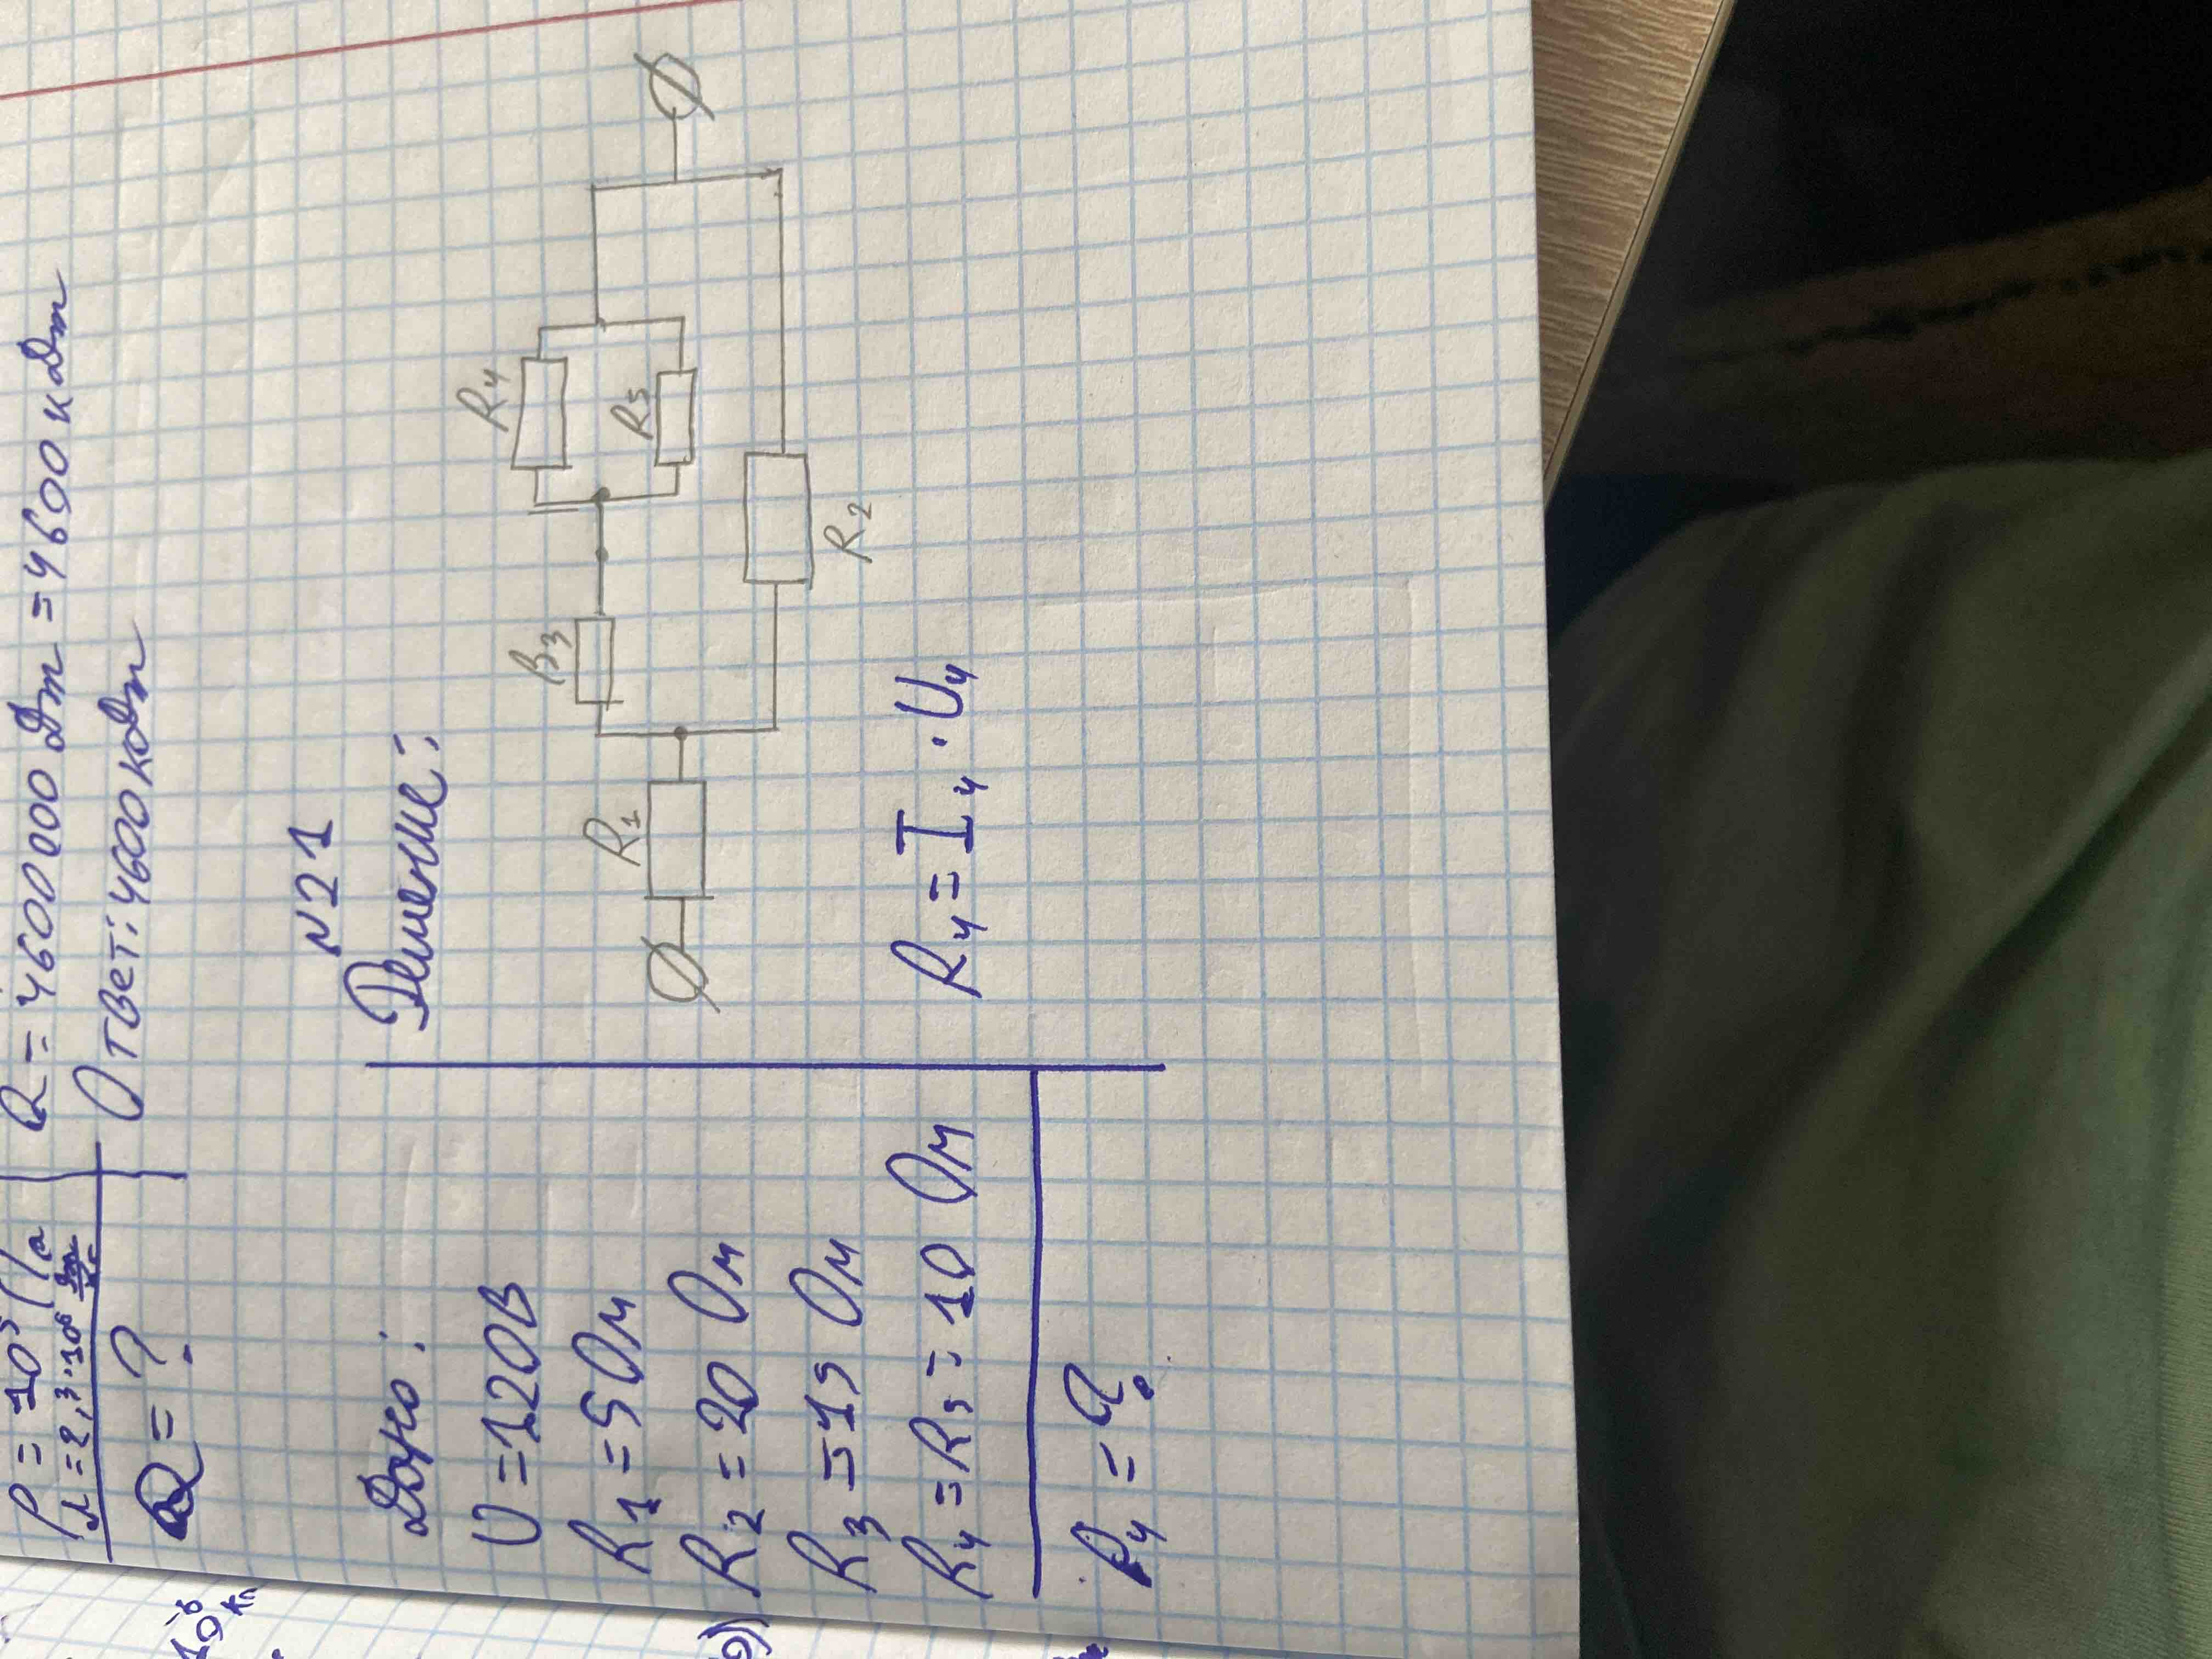 P = 10⁵ Па
L = 2,3·10⁶ Дж/кг
Q = ?
Q = 4600 000 Дж = 4600 кДж
Ответ: 4600 кДж
№21
Дано:
U = 120В
R₁ = 5 Ом
R₂ = 20 Ом
R₃ = 15 Ом
R₄ = R₅ = 10 Ом
P₄ = ?
Решение:
R₁
R₃
R₄
R₅
R₂
R₄ = I₄ · U₄